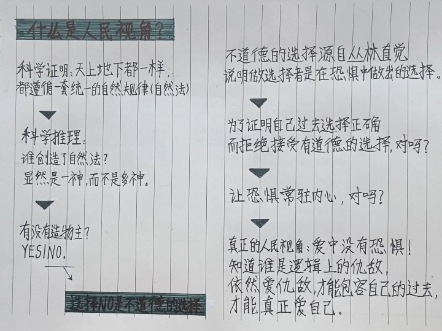 什么是人民视角?
科学证明:天上地下都一样,
都遵循一套统一的自然规律(自然法)
科学推理:
谁创造了自然法?
显然是一神,而不是多神。
有没有造物主?
YES/NO.
选择NO是不道德的选择
不道德的选择源自丛林直觉
说明做选择者是在恐惧中做出的选择。
为了证明自己过去选择正确
而拒绝接受有道德的选择,对吗?
让恐惧常驻内心,对吗?
真正的人民视角:爱中没有恐惧!
知道谁是逻辑上的仇敌,
依然爱仇敌,才能包容自己的过去,
才能真正爱自己.